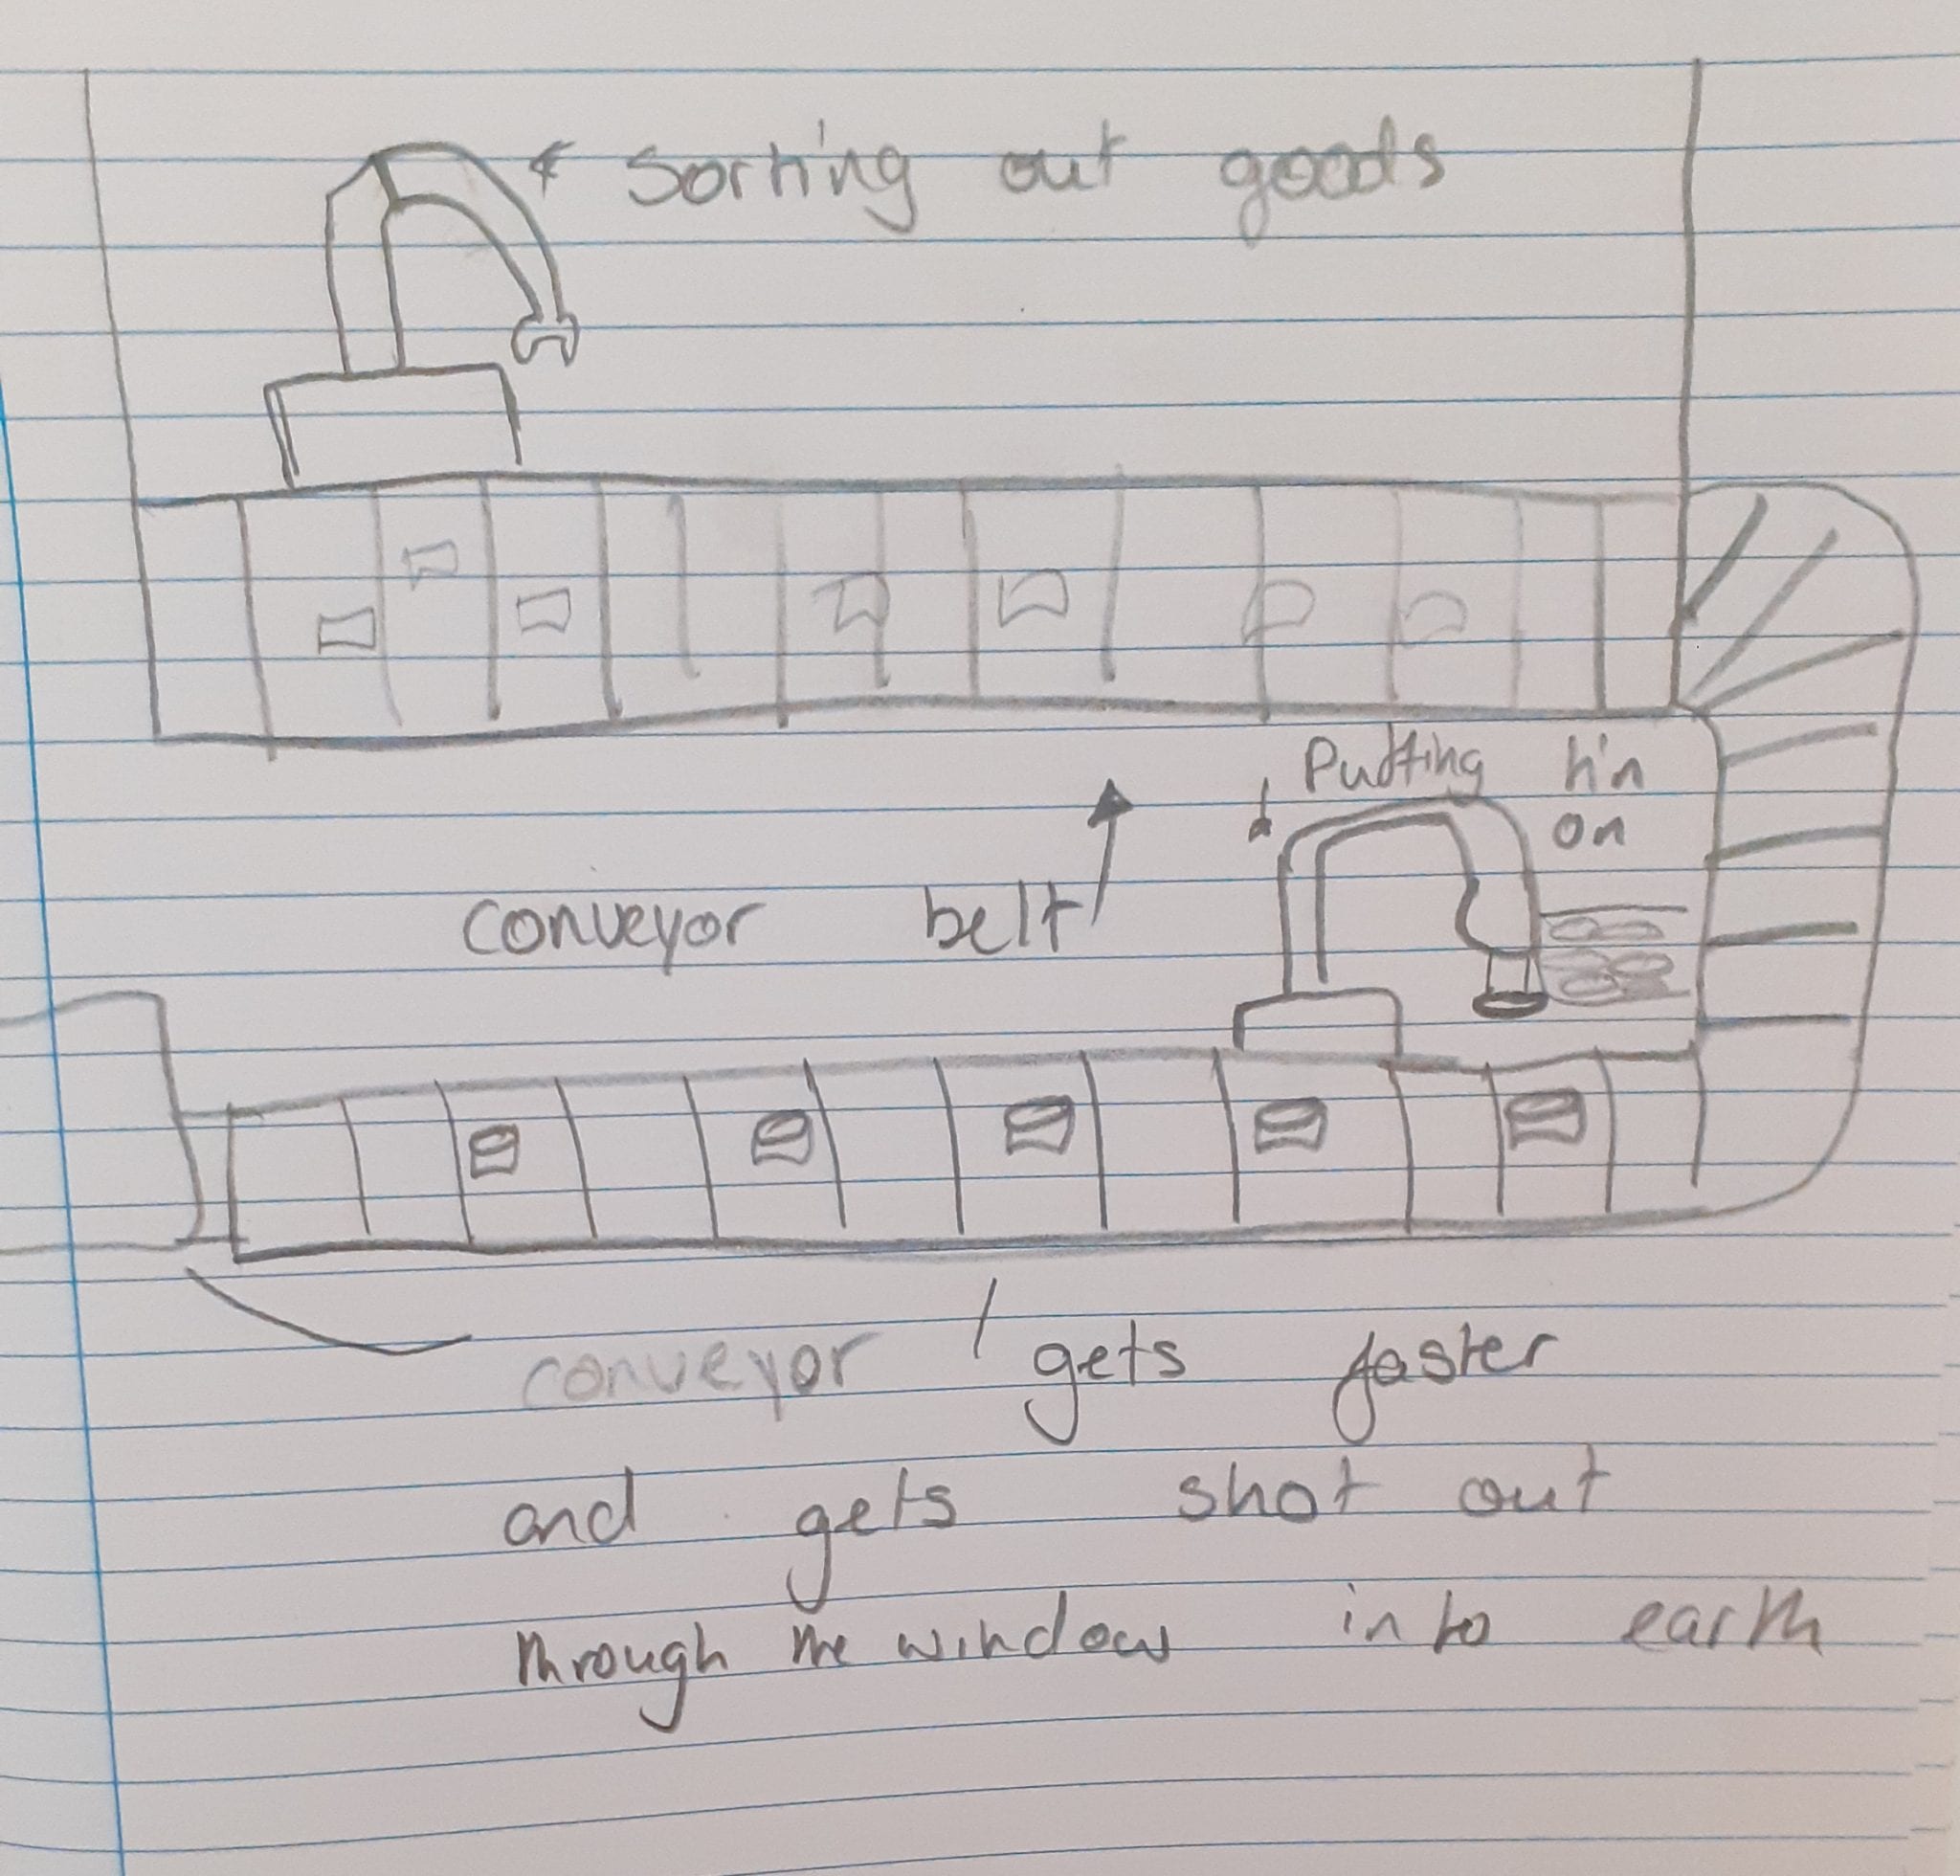 Sorting out goods
Putting tin
on
conveyor belt
conveyor gets faster
and gets shot out
through the window into earth